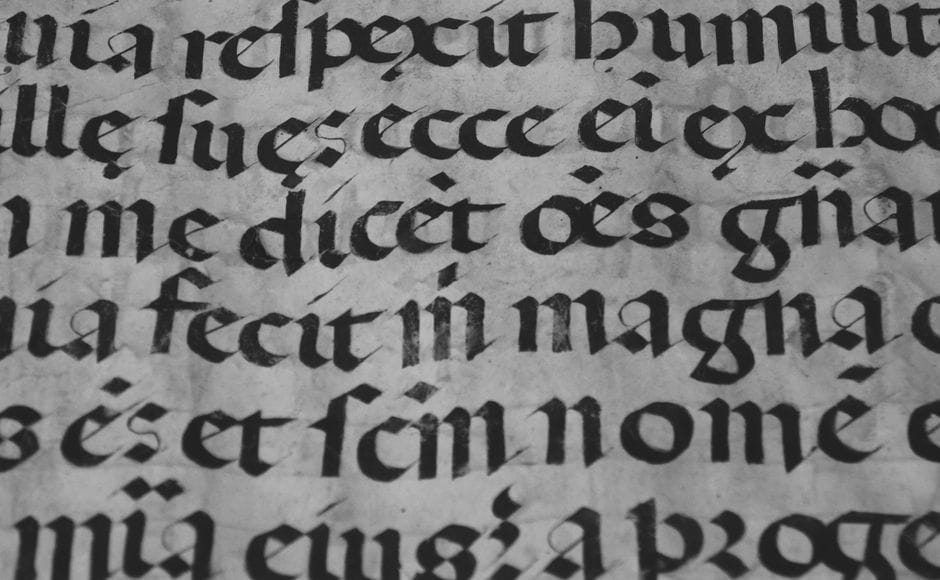 uia reſpexit humilit
illę ſuę: ecce ei ex hoc
me dicēt oēs gn̄a
uia fecit mͥ magna
s ē: et ſcm̄ nomē e
mīa eius: a proge